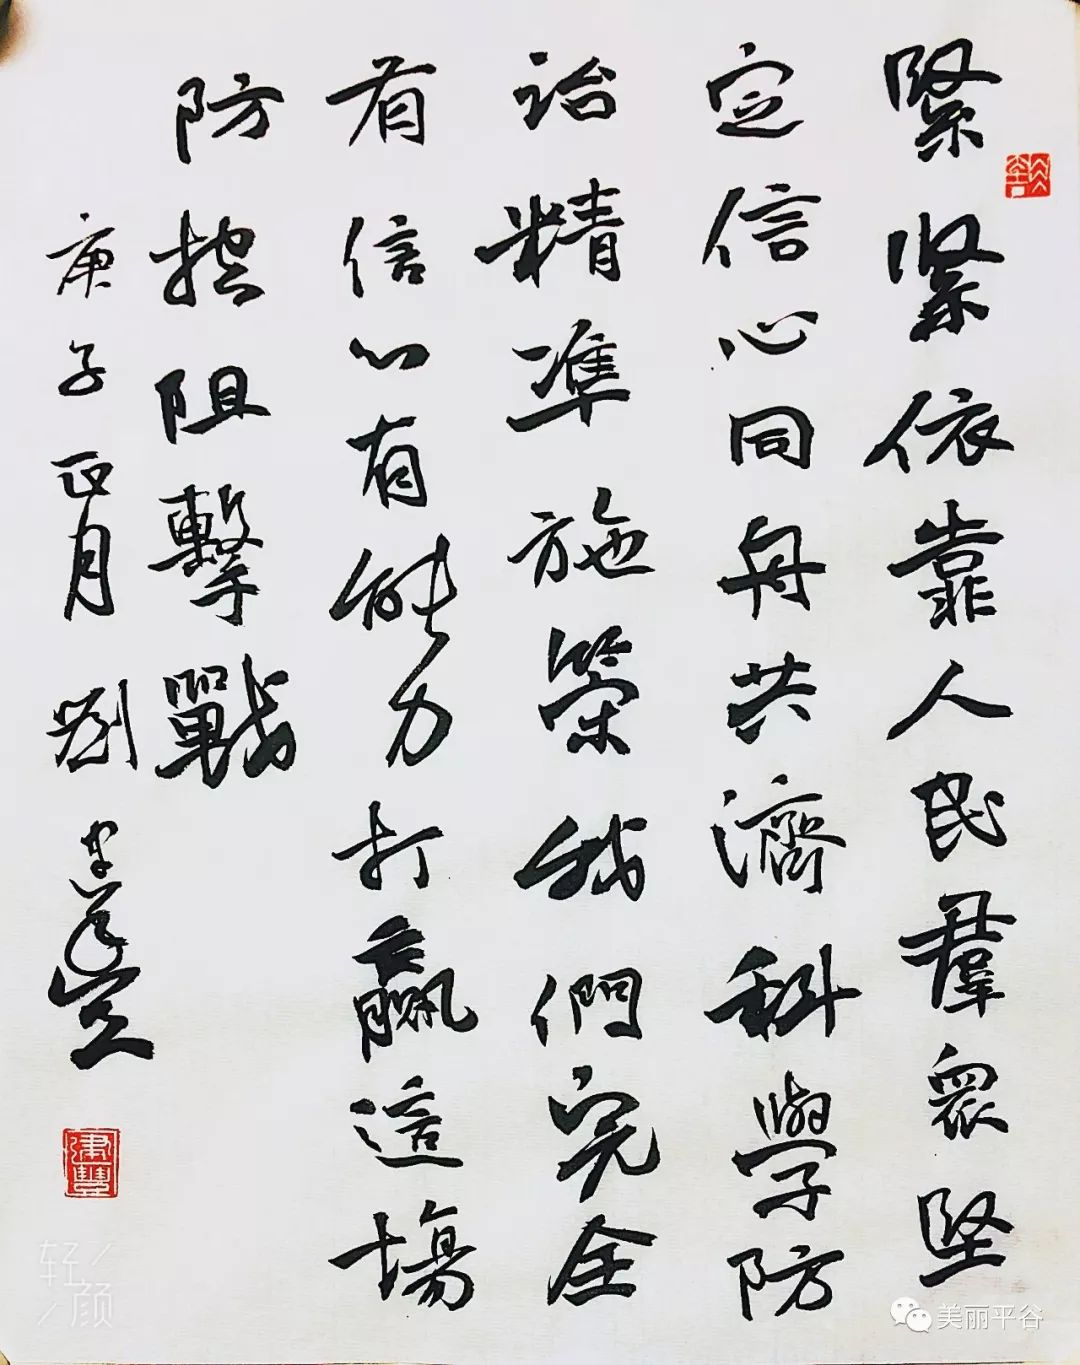 緊緊依靠人民羣衆堅
定信心同舟共濟科學防
治精凖施策我們完全
有信心有能力打贏這場
防控阻擊戰
庚子正月劉
建豐
轻颜
美丽平谷